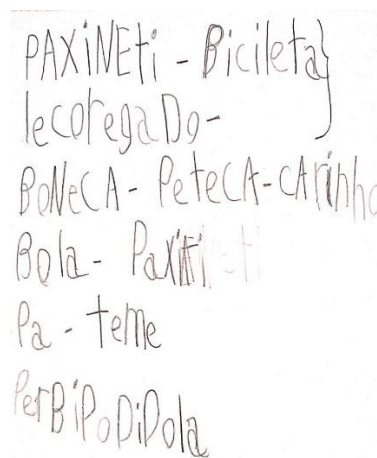 PAXiNEti - Bicileta}
lecoregaDo-
BoNeCA - PeteCA - CArinho
Bola - Paxiti
Pa - teme
PerBiPoDiPola